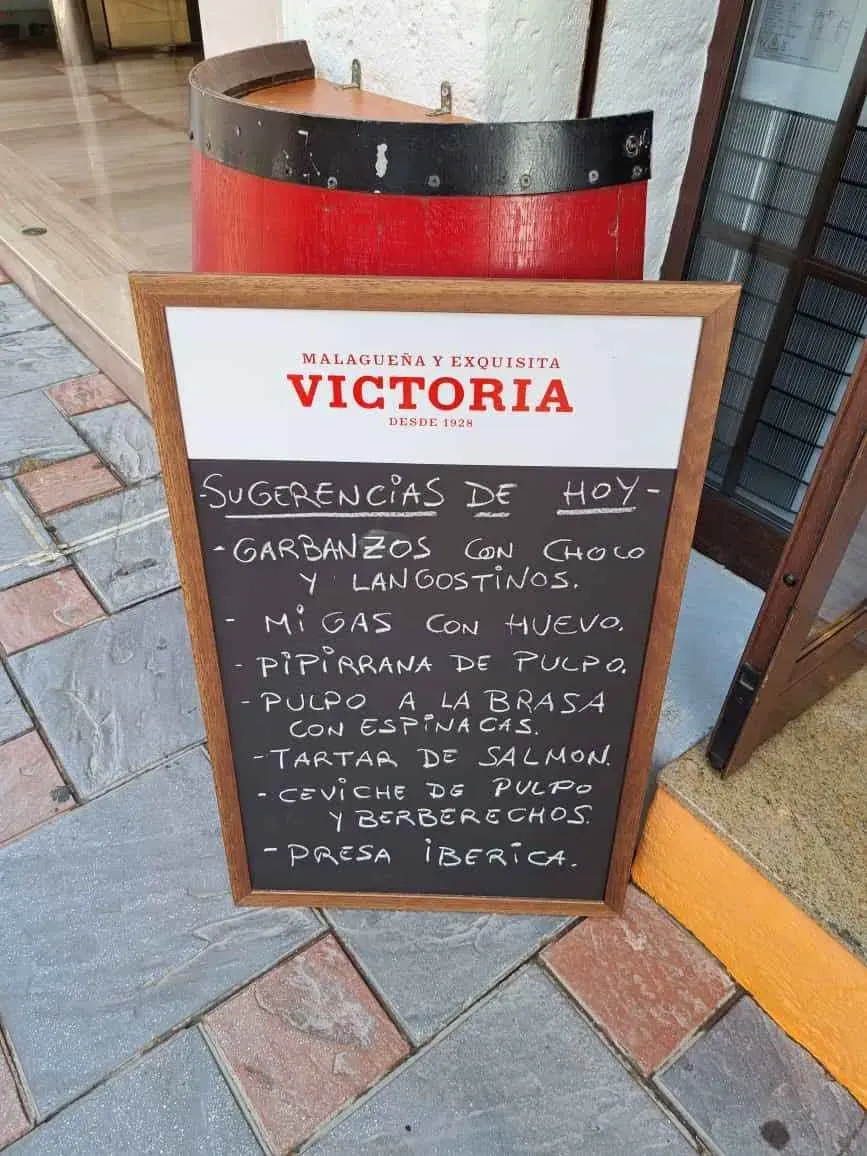 MALAGUEÑA Y EXQUISITA
VICTORIA
DESDE 1928
-SUGERENCIAS DE HOY-
- GARBANZOS CON CHOCO
Y LANGOSTINOS.
- MIGAS CON HUEVO.
- PIPIRRANA DE PULPO.
- PULPO A LA BRASA
CON ESPINACAS.
- TARTAR DE SALMON.
- CEVICHE DE PULPO
Y BERBERECHOS.
- PRESA IBERICA.